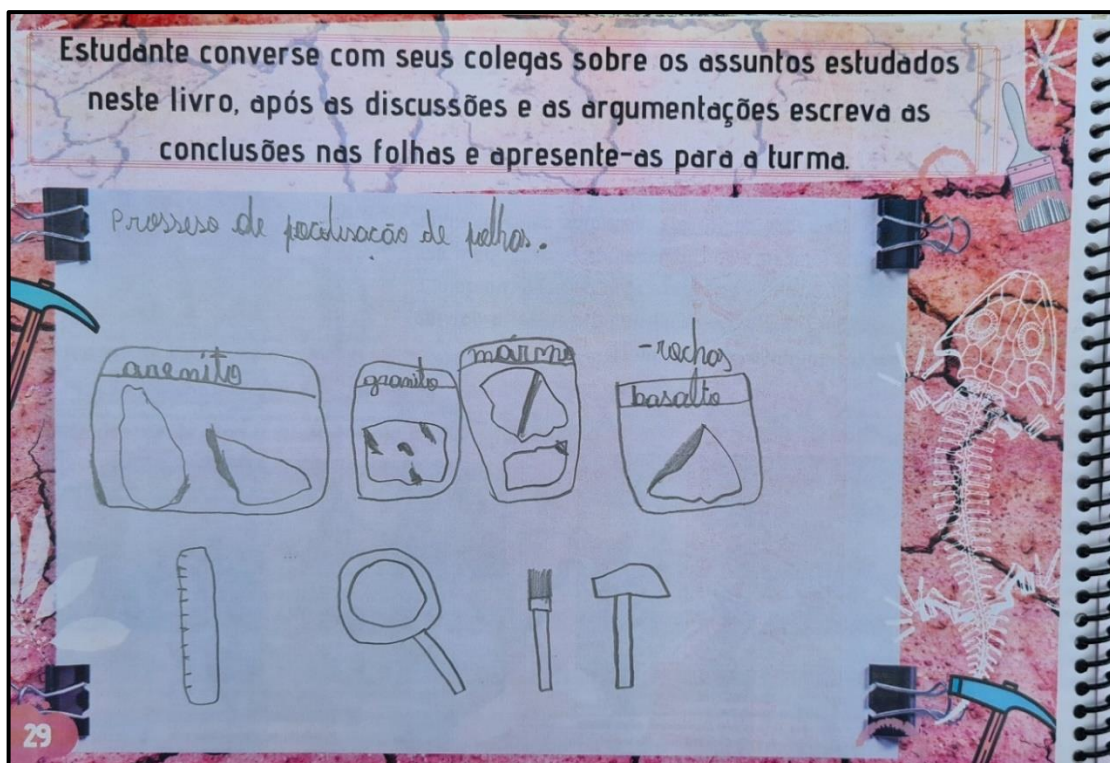 Estudante converse com seus colegas sobre os assuntos estudados
neste livro, após as discussões e as argumentações escreva as
conclusões nas folhas e apresente-as para a turma.
Prosseso de de folhas.
-rochas
arenito
granito
mármo
basalto
29